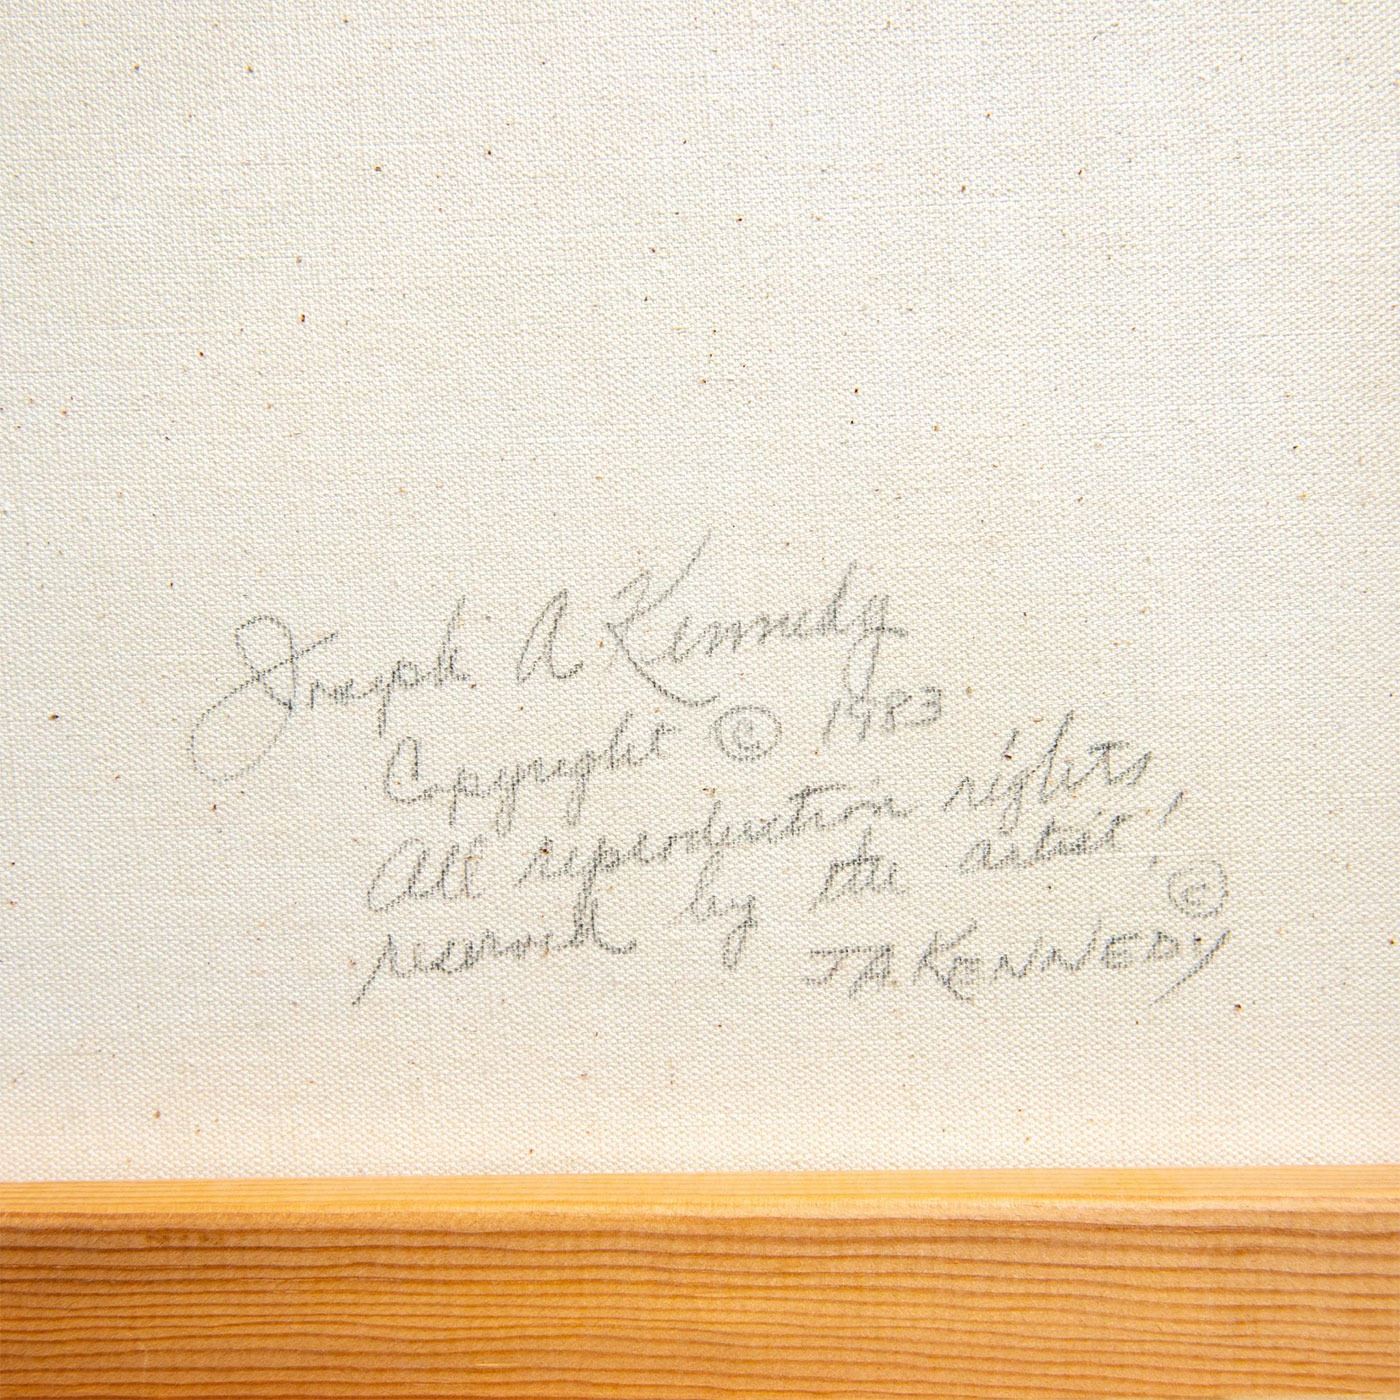 Joseph A Kennedy
Copyright © 1983
All reproduction rights,
reserved by the artist,
© JA KENNEDY